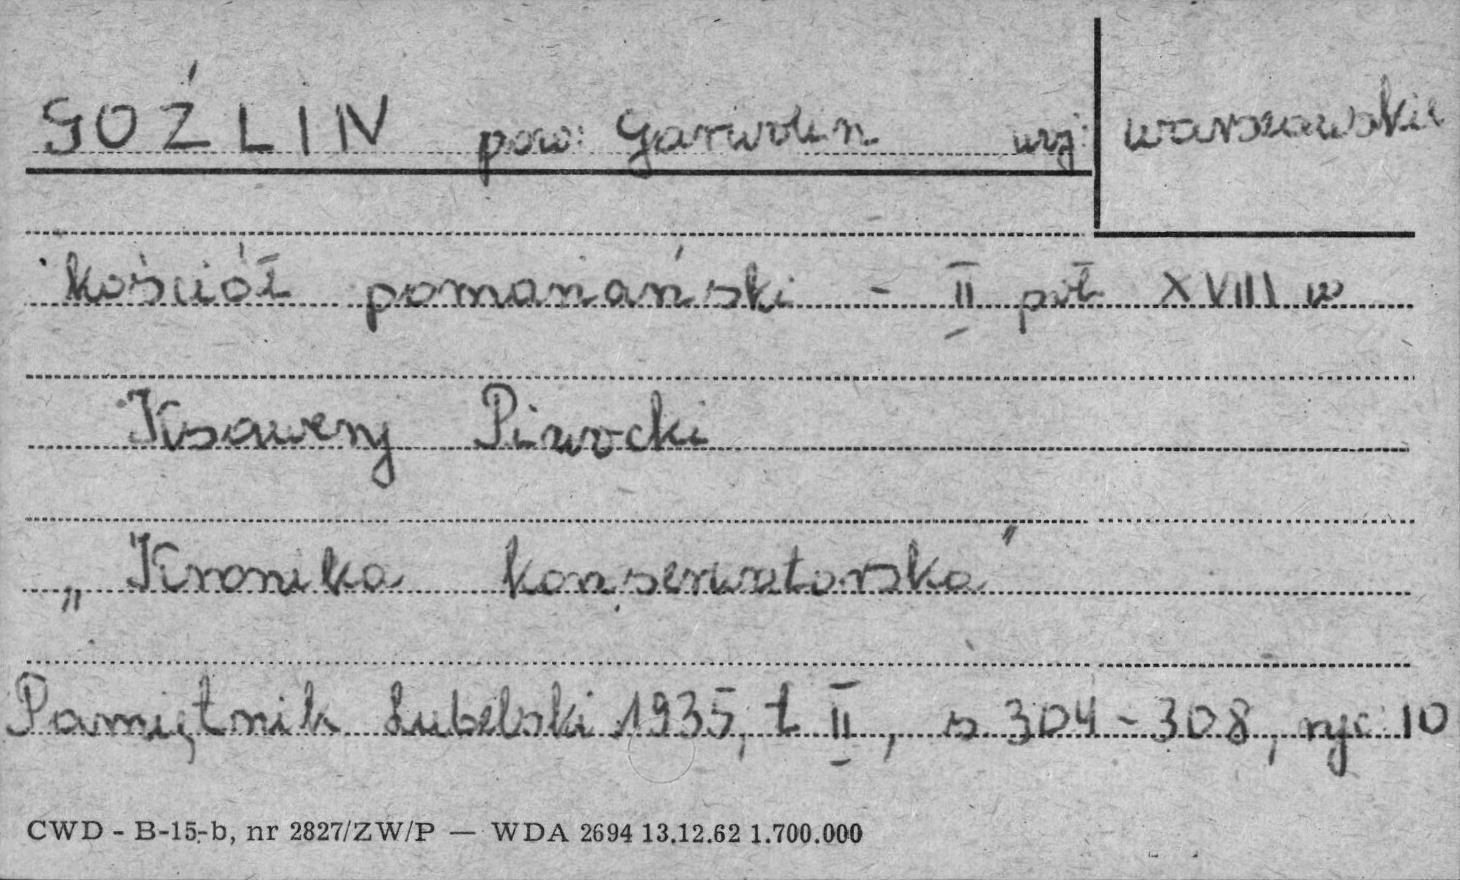 GOŹLIN pow: Garwolin woj: warszawskie
kościół pomariański - II poł XVIII w
Ksawery Piwocki
„Kronika konserwatorska"
Pamiętnik Lubelski 1935, t II, s. 304-308, ryc 10
CWD - B-15-b, nr 2827/ZW/P — WDA 2694 13.12.62 1.700.000